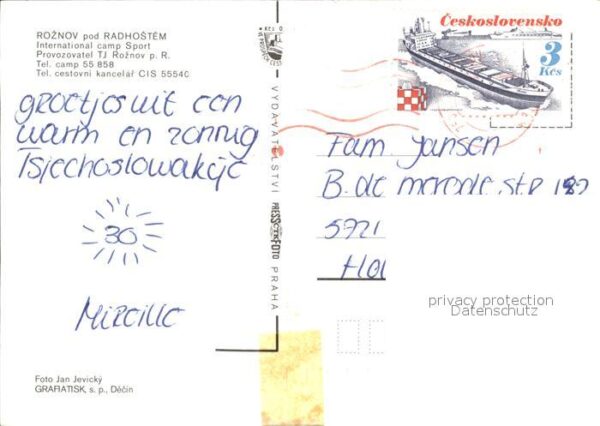 ROŽNOV pod RADHOŠTĚM
International camp Sport
Provozovatel TJ Rožnov p. R.
Tel. camp 55 858
Tel. cestovní kancelář CIS 55540
groetjes uit een
warm en zonnig
Tsjechoslowakije
30
Mireille
Foto Jan Jevický
GRAFIATISK, s. p., Děčín
VYDAVATELSTVÍ PRESSFOTO PRAHA
Kčs
Československo
3
Kčs
Fam. Jansen
B. de merode str
5721
Hol
privacy protection
Datenschutz